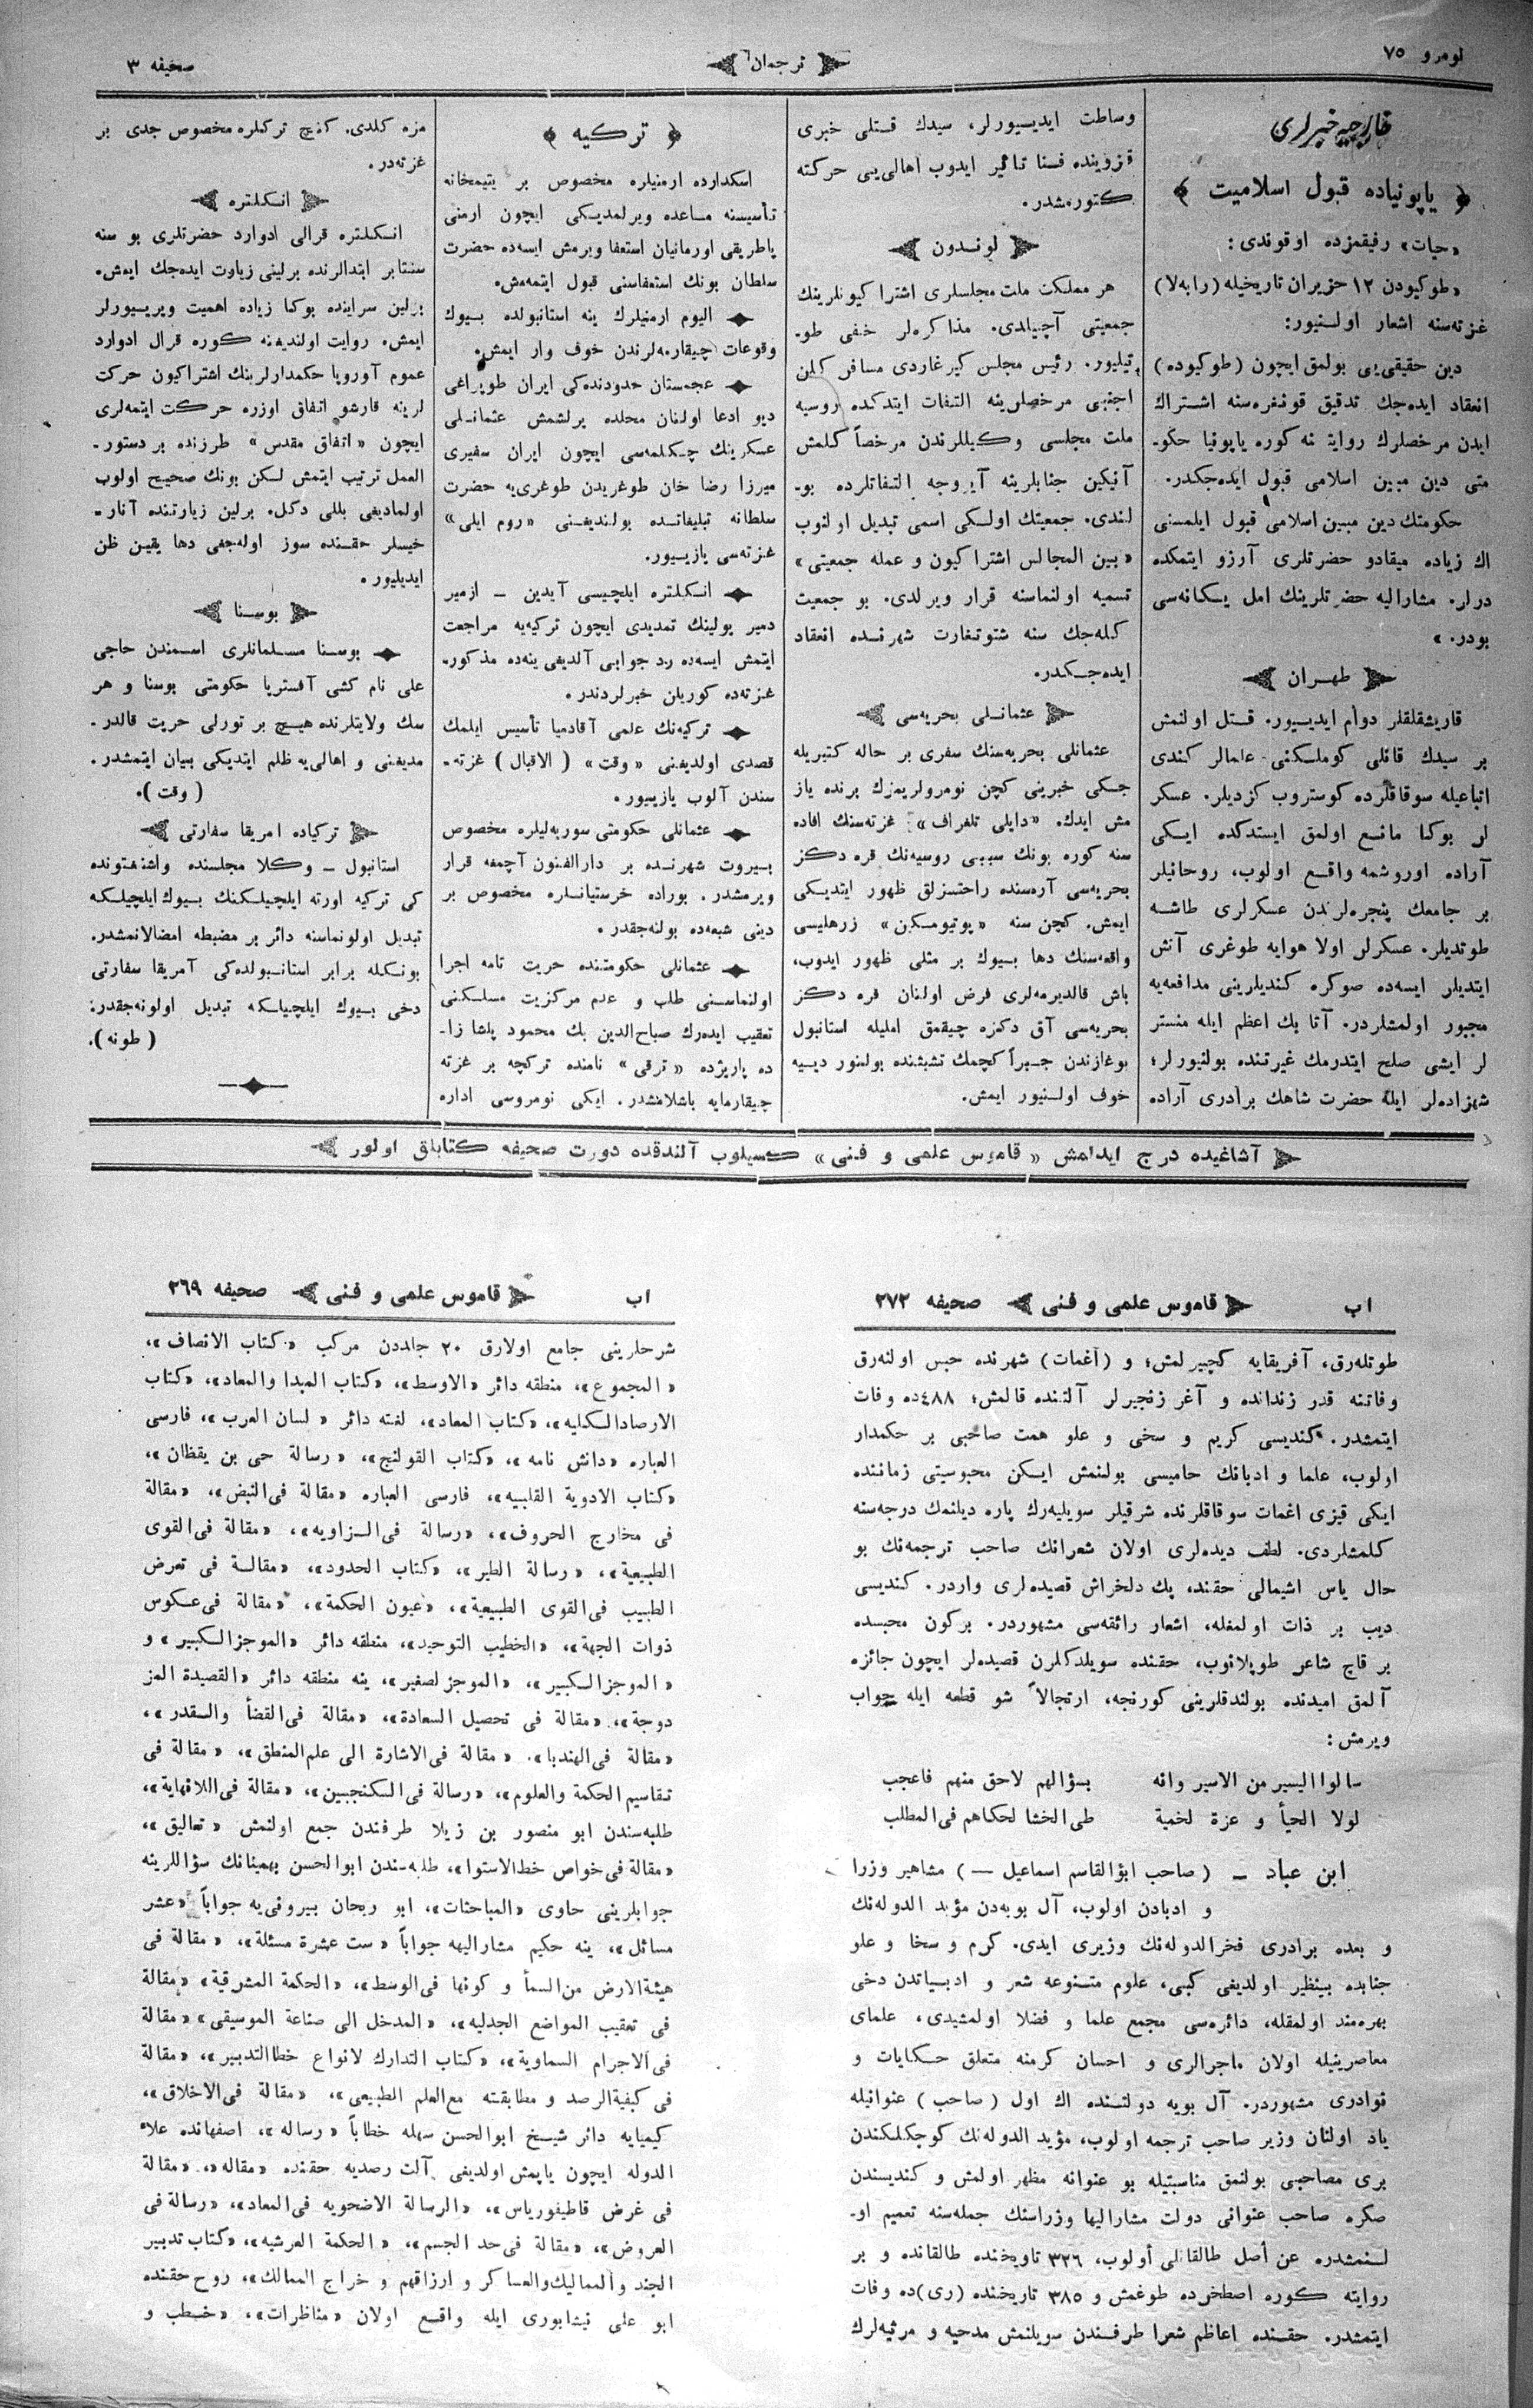 نومرو ٧٥
ترجمان
صحيفه ٣
خارجيه خبرلرى
ياپونياده قبول اسلاميت
«حيات» رفيقمزده اوقوندى:
«طوكيودن ١٢ حزيران تاريخيله (رابه‌لا)
غزته‌سنه اشعار اولنيور:
دين حقيقى‌يى بولمق ايچون (طوكيوده)
انعقاد ايده‌جك تدقيق قونفره‌سنه اشتراك
ايدن مرخصلرك روايته كوره ياپونيا حكو-
متى دين مبين اسلامى قبول ايده‌جكدر.
حكومتك دين مبين اسلامى قبول ايلمسنى
اك زياده ميقادو حضرتلرى آرزو ايتمكده
درلر. مشاراليه حضرتلرينك امل يكانه‌سى
بودر. »
طهران
قاريشقلقلر دوام ايديسيور. قتل اولنمش
بر سيدك قانلى كوملكنى علمالر كندى
اتباعيله سوقاقلرده كوستروب كزديلر. عسكر
لر بوكا مانع اولمق ايستدكده ايكى
آراده اوروشمه واقع اولوب، روحانيلر
بر جامعك پنجره‌لرندن عسكرلرى طاشه
طوتديلر. عسكرلر اولا هوايه طوغرى آتش
ايتديلر ايسه‌ده صوكره كنديلرينى مدافعه‌يه
مجبور اولمشلردر. آتا بك اعظم ايله منستر
لر ايشى صلح ايتدرمك غيرتنده بولنيورلر؛
شهزاده‌لر ايله حضرت شاهك برادرى آراده
وساطت ايديسيورلر، سيدك قتلى خبرى
قزوينده فنا تأثير ايدوب اهالى‌يى حركته
كتورمشدر.
لوندون
هر مملكت ملت مجلسلرى اشتراكيونلرينك
جمعيتى آچيلدى. مذاكره‌لر خفى طو-
تيليور. رئيس مجلس كيرغاردى مسافر كلن
اجنبى مرخصلرينه التفات ايتدكده روسيه
ملت مجلسى وكيللرندن مرخصاً كلمش
آنيكين جنابلرينه آيروجه التفاتلرده بو-
لندى. جمعيتك اولكى اسمى تبديل اولنوب
«بين المجالس اشتراكيون و عمله جمعيتى»
تسميه اولنماسنه قرار ويرلدى. بو جمعيت
كله‌جك سنه شتوتغارت شهرنده انعقاد
ايده‌جكدر.
عثمانلى بحريه‌سى
عثمانلى بحريه‌سنك سفرى بر حاله كتيريله
جكى خبرينى كچن نومرولريمزك برنده ياز
مش ايدك. «دايلى تلغراف» غزته‌سنك افاده
سنه كوره بونك سببى روسيه‌نك قره دكز
بحريه‌سى آره‌سنده راحتسزلق ظهور ايتديكى
ايمش. كچن سنه «پوتيومكين» زرهليسى
واقعه‌سنك دها بيوك بر مثلى ظهور ايدوب،
باش قالديرمه‌لرى فرض اولنان قره دكز
بحريه‌سى آق دكزه چيقمق امليله استانبول
بوغازندن جبراً كچمك تشبثنده بولنور دييه
خوف اولنيور ايمش.
تركيه
اسكدارده ارمنيلره مخصوص بر يتيمخانه
تأسيسنه مساعده ويرلمديكى ايچون ارمنى
پاطريقى اورمانيان استعفا ويرمش ايسه‌ده حضرت
سلطان بونك استعفاسنى قبول ايتمه‌مش.
اليوم ارمنيلرك ينه استانبولده بيوك
وقوعات چيقارمه‌لرندن خوف وار ايمش.
عجمستان حدودنده‌كى ايران طوپراغى
ديو ادعا اولنان محلده يرلشمش عثمانلى
عسكرينك چكلمه‌سى ايچون ايران سفيرى
ميرزا رضا خان طوغريدن طوغرى‌يه حضرت
سلطانه تبليغاتده بولنديغنى «روم ايلى»
غزته‌سى يازيسيور.
انكلتره ايلچيسى آيدين - ازمير
دمير يولينك تمديدى ايچون تركيه‌يه مراجعت
ايتمش ايسه‌ده رد جوابى آلديغى ينه‌ده مذكور.
غزته‌ده كوريلن خبرلردندر.
تركيه‌نك علمى آقادميا تأسيس ايلمك
قصدى اولديغنى «وقت» (الاقبال) غزته-
سندن آلوب يازيسيور.
عثمانلى حكومتى سوريه‌ليلره مخصوص
بيروت شهرنده بر دارالفنون آچمغه قرار
ويرمشدر. بوراده خرستيانلره مخصوص بر
دينى شعبه‌ده بولنه‌جقدر.
عثمانلى حكومتنده حريت تامه اجرا
اولنماسنى طلب و عدم مركزيت مسلكنى
تعقيب ايده‌رك صباح‌الدين بك محمود پاشا زا-
ده پاريژده «ترقى» نامنده تركچه بر غزته
چيقارمايه باشلامشدر. ايكى نومروسى اداره
مزه كلدى. كنج تركلره مخصوص جدى بر
غزته‌در.
انكلتره
انكلتره قرالى ادوارد حضرتلرى بو سنه
سنتابر ابتدالرنده برلينى زيارت ايده‌جك ايمش.
برلين سراينده بوكا زياده اهميت ويريسيورلر
ايمش. روايت اولنديغنه كوره قرال ادوارد
عموم آوروپا حكمدارلرينك اشتراكيون حركت
لرينه قارشو اتفاق اوزره حركت ايتمه‌لرى
ايچون «اتفاق مقدس» طرزنده بر دستور-
العمل ترتيب ايتمش لكن بونك صحيح اولوب
اولماديغى بللى دكل. برلين زيارتنده آنار-
خيسلر حقنده سوز اوله‌جغى دها يقين ظن
ايديليور.
بوسنا
بوسنا مسلمانلرى اسمندن حاجى
على نام كشى آفستريا حكومتى بوسنا و هر
سك ولايتلرنده هيچ بر تورلى حريت قالدر-
مديغنى و اهالى‌يه ظلم ايتديكى بيان ايتمشدر.
(وقت).
تركياده امريقا سفارتى
استانبول - وكلا مجلسنده واشنغتونده
كى تركيه اورته ايلچيلكنك بيوك ايلچيلكه
تبديل اولونماسنه دائر بر مضبطه امضالانمشدر.
بونكله برابر استانبولده‌كى آمريقا سفارتى
دخى بيوك ايلچيلكه تبديل اولونه‌جقدر:
(طونه).
آشاغيده درج ايدلمش «قاموس علمى و فنى» كسيلوب آلندقده دورت صحيفه كتابلق اولور
اب
قاموس علمى و فنى
صحيفه ٢٧٢
طوتله‌رق، آفريقايه كچيرلمش؛ و (آغمات) شهرنده حبس اولنه‌رق
وفاتنه قدر زندانده و آغر زنجيرلر آلتنده قالمش؛ ٤٨٨ده وفات
ايتمشدر. كنديسى كريم و سخى و علو همت صاحبى بر حكمدار
اولوب، علما و ادبانك حاميسى بولنمش ايكن محبوسيتى زماننده
ايكى قيزى اغمات سوقاقلرنده شرقيلر سويليه‌رك پاره ديلنمك درجه‌سنه
كلمشلردى. لطف ديده‌لرى اولان شعرانك صاحب ترجمه‌نك بو
حال ياس اشيمالى حقنده، پك دلخراش قصيده‌لرى واردر. كنديسى
ديب بر ذات اولمغله، اشعار رائقه‌سى مشهوردر. بركون محبسده
بر قاچ شاعر طوپلانوب، حقنده سويلدكلرن قصيده‌لر ايچون جائزه
آلمق اميدنده بولندقلرينى كورنجه، ارتجالاً شو قطعه ايله جواب
ويرمش:
سالوا اليسير من الاسير وانه بسؤالهم لاحق منهم فاعجب
لولا الحيأ و عزة لخمية طى الخشا لحكاهم فى المطلب
ابن عباد - (صاحب ابوالقاسم اسماعيل —) مشاهير وزرا
و ادبادن اولوب، آل بويه‌دن مؤيد الدوله‌نك
و بعده برادرى فخرالدوله‌نك وزيرى ايدى. كرم و سخا و علو
جنابده بينظير اولديغى كبى، علوم متنوعه شعر و ادبياتدن دخى
بهره‌مند اولمقله، دائره‌سى مجمع علما و فضلا اولمشيدى، علماى
معاصرينيله اولان ماجرالرى و احسان كرمنه متعلق حكايات و
نوادرى مشهوردر. آل بويه دولتنده اك اول (صاحب) عنوانيله
ياد اولنان وزير صاحب ترجمه اولوب، مؤيد الدوله‌نك كوچكلكندن
برى مصاحبى بولنمق مناسبتيله بو عنوانه مظهر اولمش و كنديسندن
صكره صاحب عنوانى دولت مشاراليها وزراسنك جمله‌سنه تعميم او-
لنمشدره عن أصل طالقانلى أولوب، ٣٢٦ تاويخنده طالقانده و بر
روايته كوره اصطخرده طوغمش و ٣٨٥ تاريخنده (رى)ده وفات
ايتمشدر. حقنده اعاظم شعرا طرفندن سويلنمش مدحيه و مرثيه‌لرك
اب
قاموس علمى و فنى
صحيفه ٢٦٩
شرحلرينى جامع اولارق ٢٠ جلددن مركب «كتاب الانصاف»،
«المجموع»، منطقه دائر «الاوسط»، «كتاب المبدا والمعاد»، «كتاب
الارصادالكليه»، «كتاب المعاد»، لغته دائر «لسان العرب»، فارسى
العباره «دانش نامه»، «كتاب القولنج»، «رسالة حى بن يقظان»،
«كتاب الادوية القلبيه»، فارسى العباره «مقالة فى النبض»، «مقالة
فى مخارج الحروف»، «رسالة فى الزاويه»، «مقالة فى القوى
الطبيعية»، «رسالة الطير»، «كتاب الحدود»، «مقالة فى تعرض
الطبيب فى القوى الطبيعية»، «عيون الحكمة»، «مقالة فى عكوس
ذوات الجهة»، «الخطيب التوحيد»، منطقه دائر «الموجز الكبير» و
«الموجز الكبير»، «الموجز لصغير»، ينه منطقه دائر «القصيدة المز
دوجة»، «مقالة فى تحصيل السعادة»، «مقالة فى القضأ والقدر»،
«مقالة فى الهندبا»، «مقالة فى الاشارة الى علم المنطق»، «مقالة فى
تقاسيم الحكمة والعلوم»، «رسالة فى السكنجبين»، «مقالة فى اللانهاية»،
طلبه‌سندن ابو منصور بن زيلا طرفندن جمع اولنمش «تعاليق»،
«مقالة فى خواص خط الاستوا»، طلبه‌سندن ابوالحسن بهمينانك سؤاللرينه
جوابلرينى حاوى «المباحثات»، ابو ريحان بيرونى‌يه جواباً «عشر
مسائل»، ينه حكيم مشاراليهه جواباً «ست عشرة مسئلة»، «مقالة فى
هيئة الارض من السمأ و كونها فى الوسط»، «الحكمة المشرقية» «مقالة
فى تعقيب المواضع الجدليه»، «المدخل الى صناعة الموسيقى» «مقالة
فى الاجرام السماوية»، «كتاب التدارك لانواع خطا التدبير»، «مقالة
فى كيفية الرصد و مطابقته مع العلم الطبيعى»، «مقالة فى الاخلاق»،
كيميايه دائر شيخ ابوالحسن سهله خطاباً «رساله»، اصفهانده علاء
الدوله ايچون ياپمش اولديغى آلت رصديه حقنده «مقاله»، «مقالة
فى غرض قاطيغورياس»، «الرسالة الاضحويه فى المعاد»، «رسالة فى
العروض»، «مقالة فى حد الجسم»، «الحكمة العرشيه»، «كتاب تدبير
الجند والمماليك والعساكر و ارزاقهم و خراج الممالك»، روح حقنده
ابو على نيشابورى ايله واقع اولان «مناظرات»، «خطب و